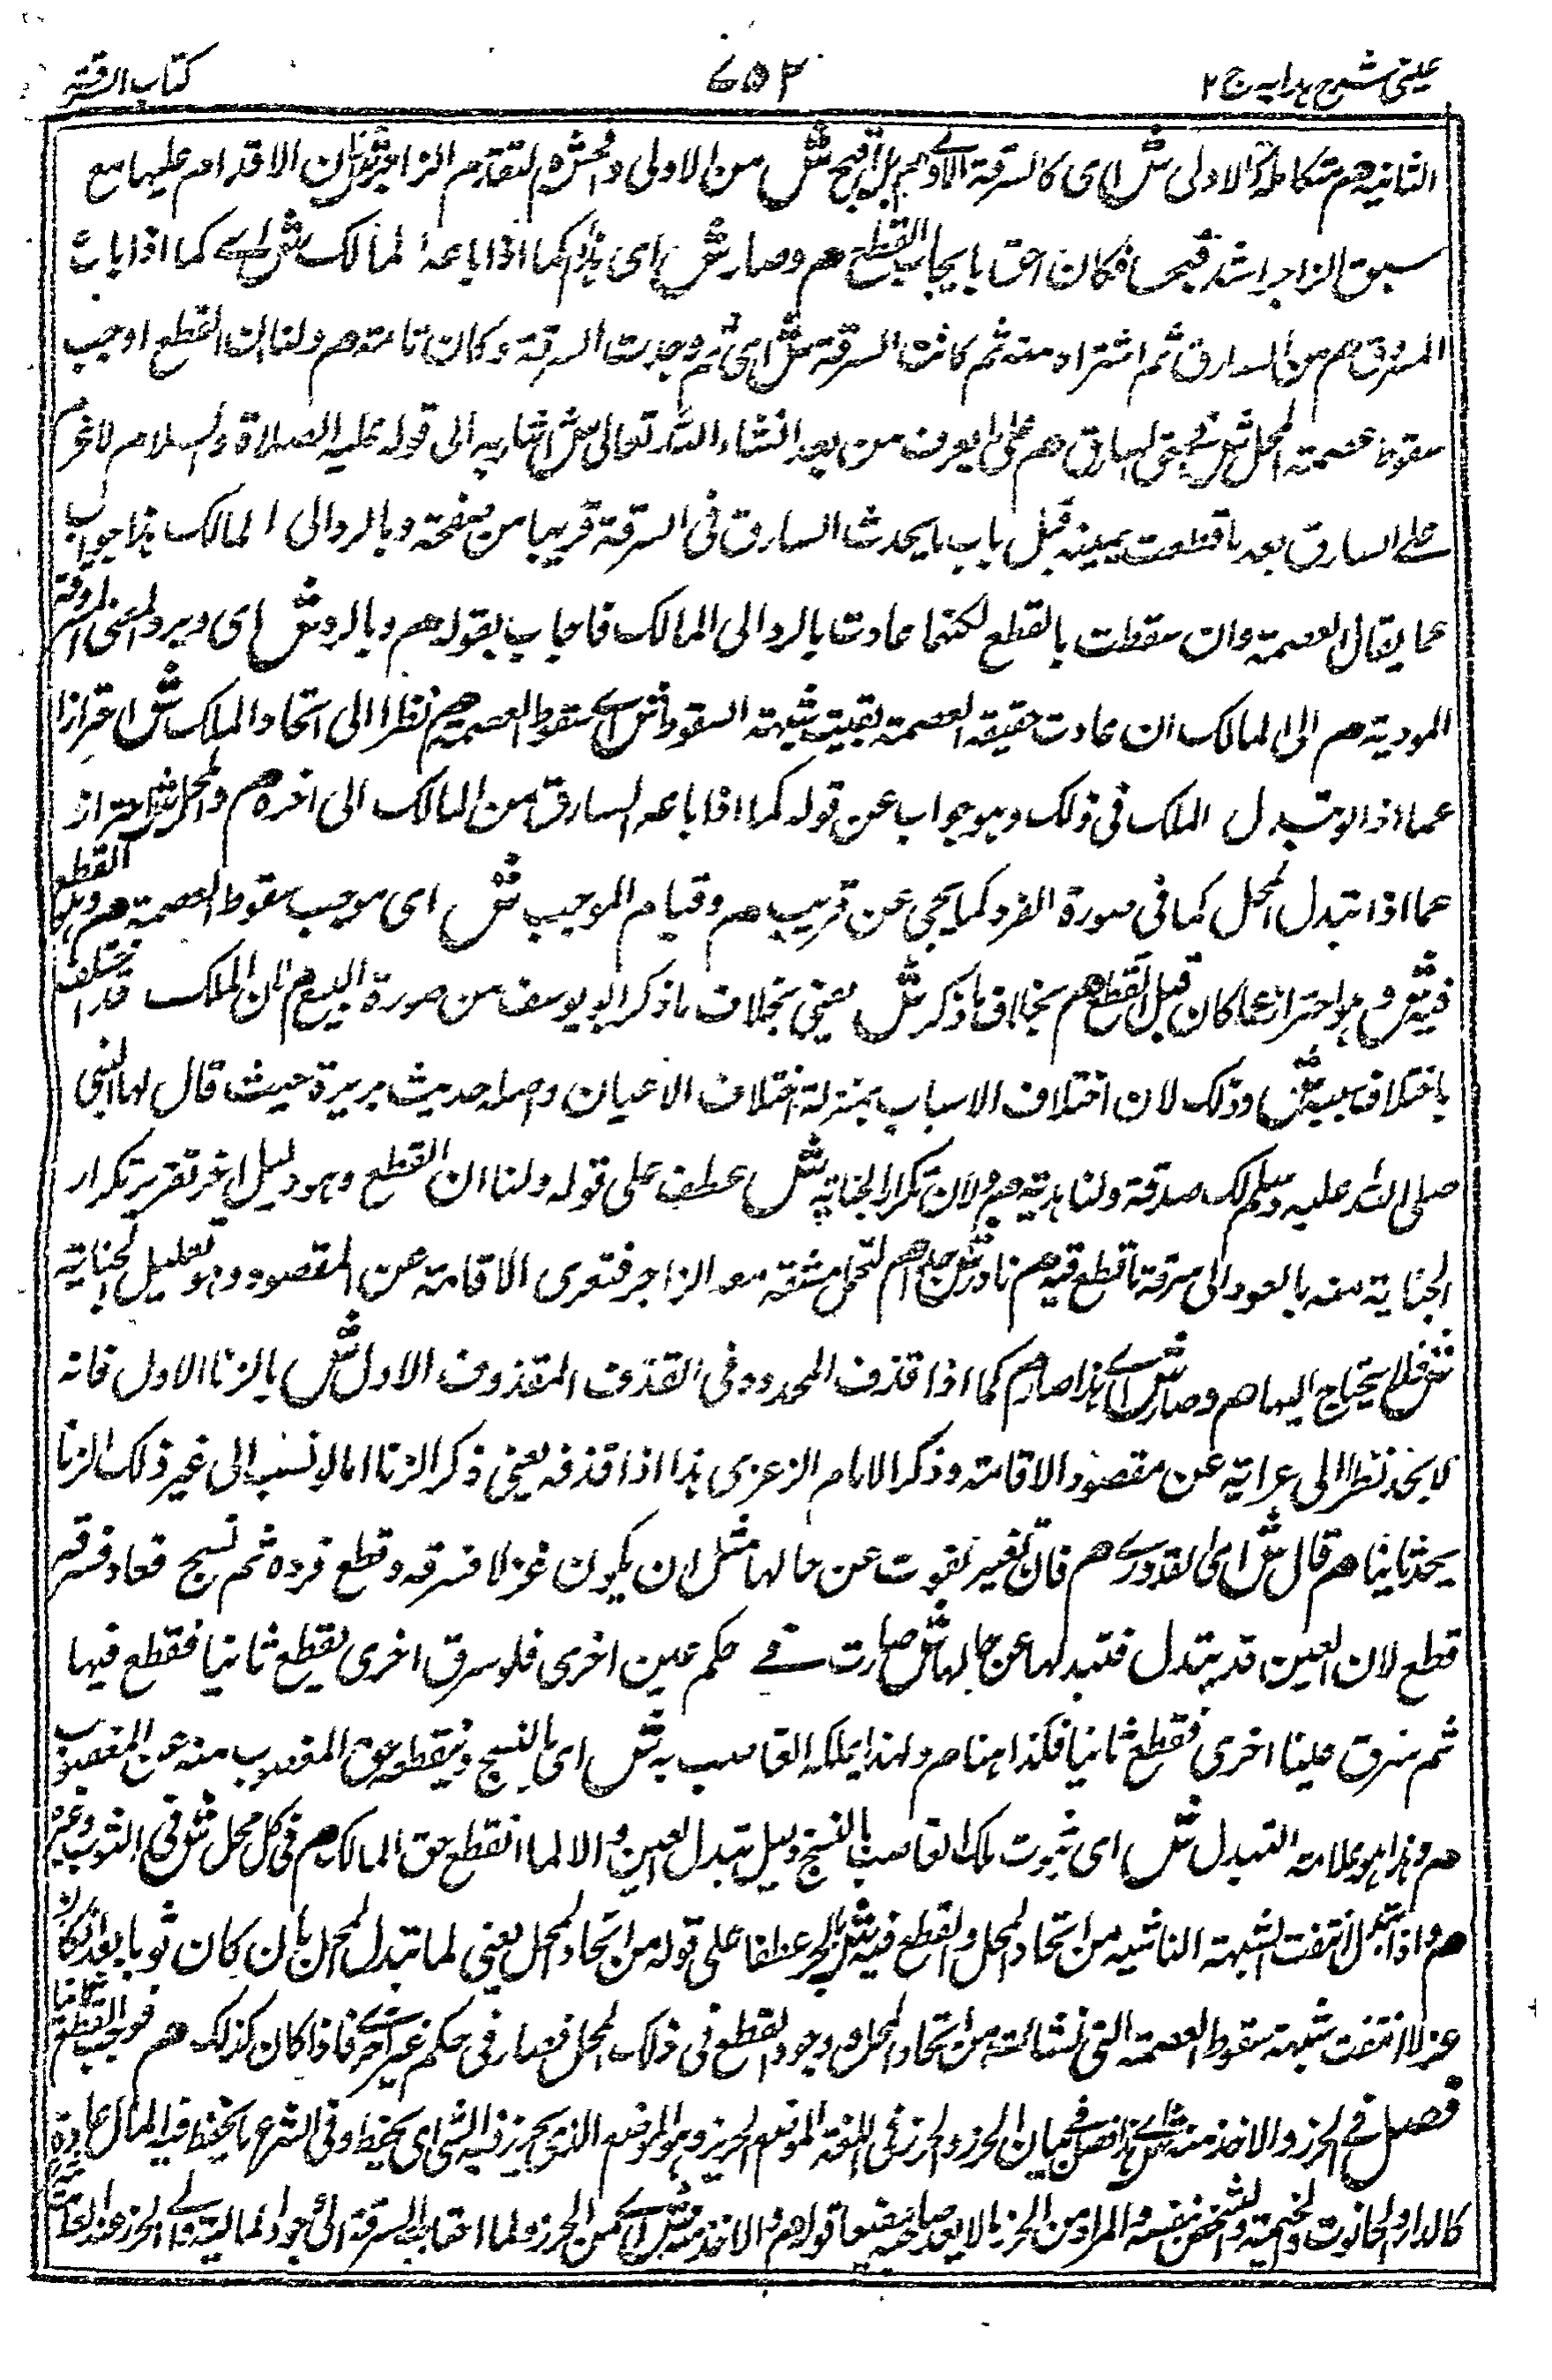 عینی شرح ہدایہ ج ۲
۶۵۲
کتاب السرقة
الثانية هم متكاملة كالاولى ش اى كالسرقة الاولى هم بل اقبح ش من الاولى وافحش هم لتقدم الزاجر ش لان الاقدام عليها مع
سبق الزاجر اشد قبحا فكان احق بايجاب القطع هم وصار ش اى هذا هم كما اذا باعه المالك ش اے كما اذا باع
المسروق هم من السارق ثم اشتراه منه ثم كانت السرقة ش اى ثم وجدت السرقة وكان تامة هم ولنا ان القطع اوجب
سقوط عصمة المحل ش فى حق السارق هم على ما يعرف من بعد انشاء الله تعالى ش اشار به الى قوله عليه الصلاة والسلام لا غرم
على السارق بعد ما قطعت يمينه قبل باب ما يحدث السارق فى السرقة قريبا من صفحة وبالرد الى المالك هذا جواب
عما يقال العصمة وان سقطت بالقطع لكنها عادت بالرد الى المالك فاجاب بقوله هم وبالرد ش اى وبرد العين المسروقة
المودية هم الى المالك ان عادت حقيقة العصمة بقيت شبهة السقوط ش اے سقوط العصمة هم نظرا الى اتحاد الملك ش احترازا
عما اذا لو تبدل الملك فى ذلك وهو جواب عن قوله كما اذا باعه السارق من المالك الى اخره هم والمحل ش احتراز
عما اذا تبدل المحل كما فى صورة الفرد كما يجى عن قريب هم وقيام الموجب ش اى موجب سقوط العصمة هم وهو القطع
فيه ش وهو احتراز عما كان قبل القطع هم بخلاف ما ذكر ش يعنى بخلاف ما ذكر ابو يوسف من صورة البيع هم لان الملك قد اختلف
باختلاف سببه ش وذلك لان اختلاف الاسباب بمنزلة اختلاف الاعيان واصله حديث بريرة حيث قال لها النبى
صلى الله عليه وسلم لك صدقة ولنا هدية هم ولان تكرار الجناية ش عطف على قوله ولنا ان القطع وهو دليل اخر تقريره تكرار
الجناية منه بالعود الى سرقة ما قطع فيه هم نادر ش جدا هم لتحمل مشقة مع الزاجر فتعرى الاقامة عن المقصود وهو تقليل الجناية
ش فلا يحتاج اليها هم وصار ش اے هذا صار هم كما اذا قذف المحدود فى القذف المقذوف الاول ش بالزنا الاول فانه
لا يحد نظرا الى عرايه عن مقصود الاقامة وذكر الامام الزعزى هذا اذا قذفه يعنى ذكر الزنا اما لو نسب الى غير ذلك الزنا
يحد ثانيا هم قال ش اى القدورے هم فان تغيرت عن حالها مثل ان يكون غزلا فسرقه وقطع فرده ثم نسج فعاد فسرقه
قطع لان العين قد تبدل فتبدلها عن حالها ش صارت فے حكم عين اخرى فلو سرق اخرى يقطع ثانيا فقطع فيها
ثم سرق عينا اخرى فقطع ثانيا فكذا هنا هم ولهذا يملكه الغاصب به ش اى بالنسج وينقطع حق المغصوب منه عن المغصوب
هم وهذا هو علامة التبدل ش اى ثبوت ملك الغاصب بالنسج دليل تبدل العين والا لما انقطع حق المالك هم فى كل محل ش فى الثوب وغيره
هم واذا تبدل انتفت الشبهة الناشية من اتحاد المحل والقطع فيه ش بالجر عطفا على قوله من اتحاد المحل يعنى لما تبدل المحل بان كان ثوبا بعد ان كان
غزلا انتفت شبهة سقوط العصمة التى نشأت من اتحاد المحل ووجود القطع فى ذلك المحل فصار فى حكم عين اخرے فاذا كان كذلك هم فوجب القطع ثانيا
فصل فے الحرز والاخذ منه ش اے هذا فصل فے بيان الحرز والحرز فى اللغة الموضع الحريز وهو الموضع الذى يحرز فيه الشى اى يحفظ وفى الشرع ما يحفظ فيه المال عادة
كالدار والحانوت والخيمة والشخص بنفسه والمراد من الحرز ما لا يعد صاحبه مضيعا قوله هم والاخذ منه ش اے من الحرز ولما